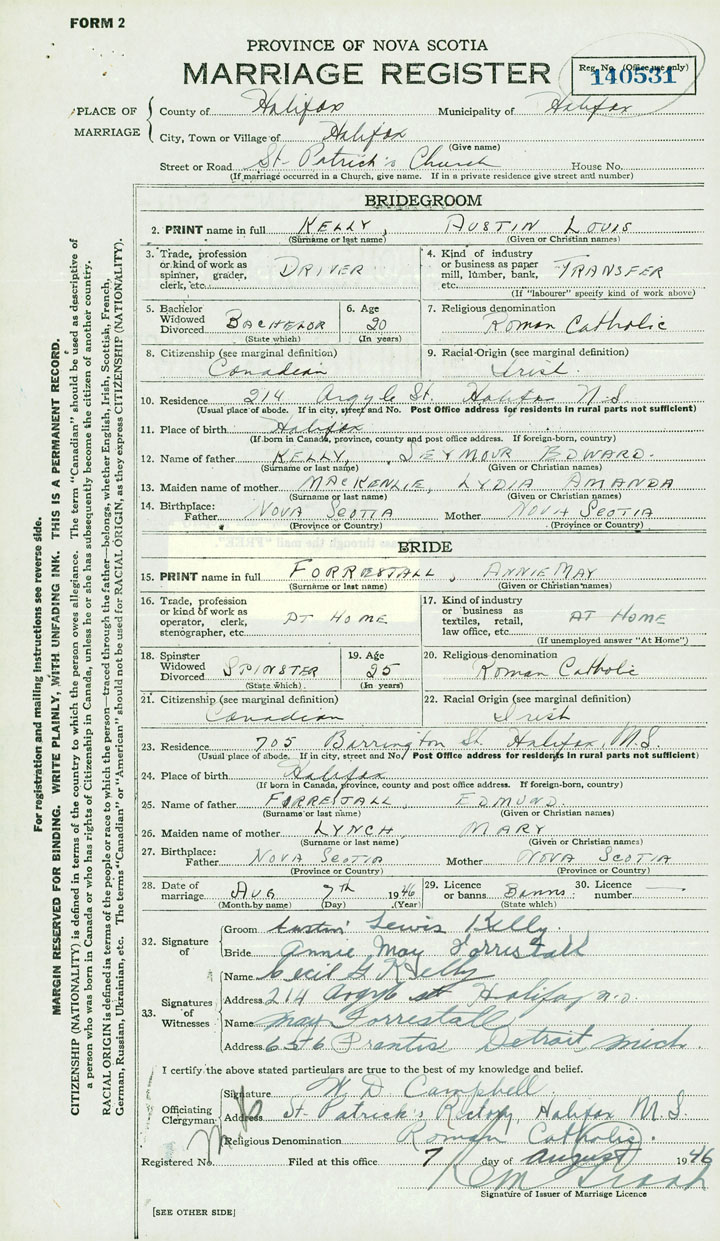 FORM 2
PROVINCE OF NOVA SCOTIA
MARRIAGE REGISTER
Reg. No. (Office use only)
140531
PLACE OF MARRIAGE
County of Halifax Municipality of Halifax
City, Town or Village of Halifax
(Give name)
Street or Road St. Patrick's Church House No.
(If marriage occurred in a Church, give name. If in a private residence give street and number)
BRIDEGROOM
2. PRINT name in full KELLY, AUSTIN LOUIS
(Surname or last name) (Given or Christian names)
3. Trade, profession or kind of work as spinner, grader, clerk, etc. DRIVER
4. Kind of industry or business as paper mill, lumber, bank, etc. TRANSFER
(If "labourer" specify kind of work above)
5. Bachelor Widowed Divorced BACHELOR
(State which)
6. Age 20
(In years)
7. Religious denomination
Roman Catholic
8. Citizenship (see marginal definition)
Canadian
9. Racial-Origin (see marginal definition)
Irish.
10. Residence 214 Argyle St. Halifax N.S.
(Usual place of abode. If in city, street and No. Post Office address for residents in rural parts not sufficient)
11. Place of birth Halifax
(If born in Canada, province, county and post office address. If foreign-born, country)
12. Name of father KELLY, SEYMOUR EDWARD.
(Surname or last name) (Given or Christian names)
13. Maiden name of mother MACKENLIE, LYDIA AMANDA
(Surname or last name) (Given or Christian names)
14. Birthplace: Father NOVA SCOTIA Mother NOVA SCOTIA
(Province or Country) (Province or Country)
BRIDE
15. PRINT name in full FORRESTALL, ANNIE MAY
(Surname or last name) (Given or Christian names)
16. Trade, profession or kind of work as operator, clerk, stenographer, etc. AT HOME
17. Kind of industry or business as textiles, retail, law office, etc. AT HOME
(If unemployed answer "At Home")
18. Spinster Widowed Divorced SPINSTER
(State which)
19. Age 25
(In years)
20. Religious denomination
Roman Catholic
21. Citizenship (see marginal definition)
Canadian
22. Racial Origin (see marginal definition)
Irish
23. Residence 705 Barrington St Halifax, N.S.
(Usual place of abode. If in city, street and No. Post Office address for residents in rural parts not sufficient)
24. Place of birth Halifax
(If born in Canada, province, county and post office address. If foreign-born, country)
25. Name of father FORRESTALL, EDMUND.
(Surname or last name) (Given or Christian names)
26. Maiden name of mother LYNCH, MARY
(Surname or last name) (Given or Christian names)
27. Birthplace: Father NOVA SCOTIA Mother NOVA SCOTIA
(Province or Country) (Province or Country)
28. Date of marriage AUG 7th 1946
(Month by name) (Day) (Year)
29. Licence or banns Banns.
(State which)
30. Licence number —
32. Signature of
Groom Austin Lewis Kelly.
Bride Annie May Forrestall
33. Signatures of Witnesses
Name Cecil G Kelly
Address 214 Argyle st Halifax N.S.
Name May Forrestall
Address 6546 Prentis Detroit Mich.
I certify the above stated particulars are true to the best of my knowledge and belief.
Officiating Clergyman
Signature W. D. Campbell
Address St. Patrick's Rectory, Halifax N.S.
Religious Denomination Roman Catholic.
Registered No. Filed at this office 7 day of August 1946
Signature of Issuer of Marriage Licence
[SEE OTHER SIDE]
For registration and mailing instructions see reverse side.
MARGIN RESERVED FOR BINDING. WRITE PLAINLY, WITH UNFADING INK. THIS IS A PERMANENT RECORD.
CITIZENSHIP (NATIONALITY) is defined in terms of the country to which the person owes allegiance. The term "Canadian" should be used as descriptive of
a person who was born in Canada or who has rights of Citizenship in Canada, unless he or she has subsequently become the citizen of another country.
RACIAL ORIGIN is defined in terms of the people or race to which the person—traced through the father—belongs, whether English, Irish, Scottish, French,
German, Russian, Ukrainian, etc. The terms "Canadian" or "American" should not be used for RACIAL ORIGIN, as they express CITIZENSHIP (NATIONALITY).